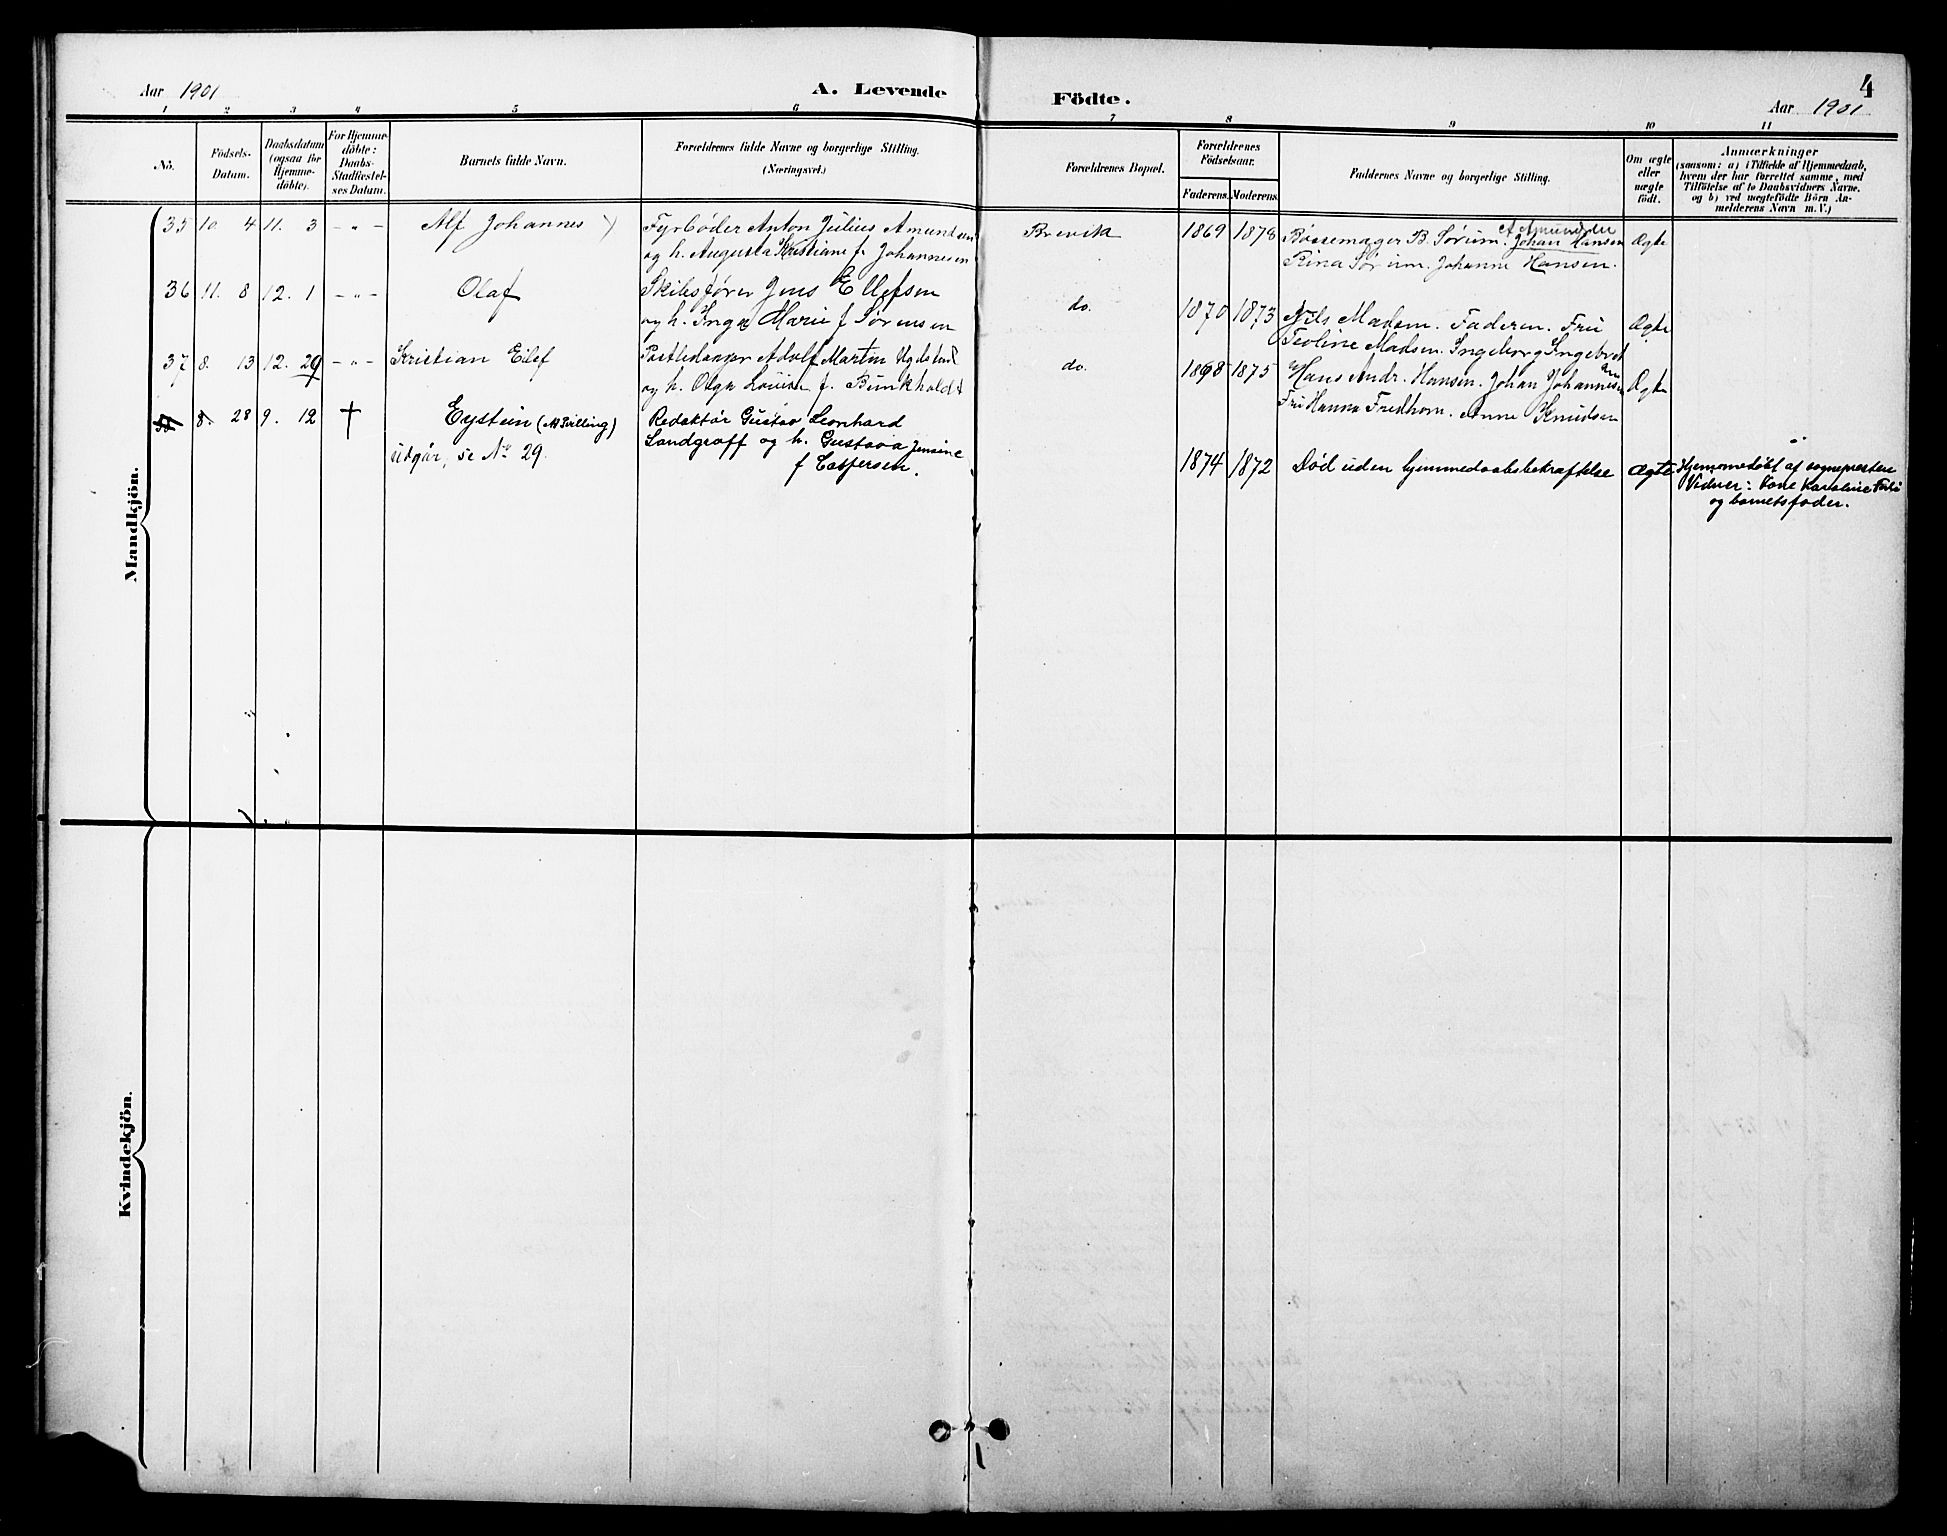 Aar 1901
A. Levende
Födte.
4
Aar 1901
1 2 3 4 5 6 7 8 9 10 11
No.
Födsels-
Datum.
Daabsdatum
(ogsaa for
Hjemme-
döbte).
For Hjemme-
döbte:
Daabs-
Stadfæstel-
ses Datum.
Barnets fulde Navn.
Forældrenes fulde Navne og borgerlige Stilling.
(Næringsvei.)
Forældrenes Bopæl.
Forældrenes
Födselsaar.
Faderens. Moderens.
Faddernes Navne og borgerlige Stilling.
Om ægte
eller
uægte
födt.
Anmærkninger
(saasom: a) i Tilfælde af Hjemmedaab,
hvem der har forrettet samme, med
Tilföielse af to Daabsvidners Navne,
og b) ved uægtefödte Börn An-
melderens Navn m. V.)
Mandkjön.
35 10. 4 11. 3 - " - Alf Johannes
Fyrbøder Anton Julius Amundsen
og h. Augusta Kristiane f. Johannesen
Brevik 1869 1878
A Amundsen
Bøssemager B. Sørum. Johan Hansen
Rina Sørum. Johanne Hansen.
Ægte
36 11. 8 12. 1 - " - Olaf
Skibsfører Jens Ellefsen
og h. Inga Marie f Sørensen
do. 1870 1873
Nils Madsen. Faderen. Fru
Teoline Madsen. Ingeborg Ingebret
sen
Ægte
37 8. 13 12. 29 - " - Kristian Eilef
Adolf Martin
og h. Olga Louise f. Bunkholdt
do. 1868 1875
Hans Andr. Hansen. Johan Johannesen
Fru Hanna Fredhom. Anne Knudsen
Ægte
8. 28 9. 12 † Eystein (Tvilling)
udgår, se No 29.
Redaktør Gustav Leonhard
Landgraff og h. Gustava Jensine
f Caspersen.
1874 1872 Død uden hjemmedaabsbekræftelse ægte
Hjemmedøbt af sognepresten
Vidner: Kone Karoline
og barnets fader.
Kvindekjön.